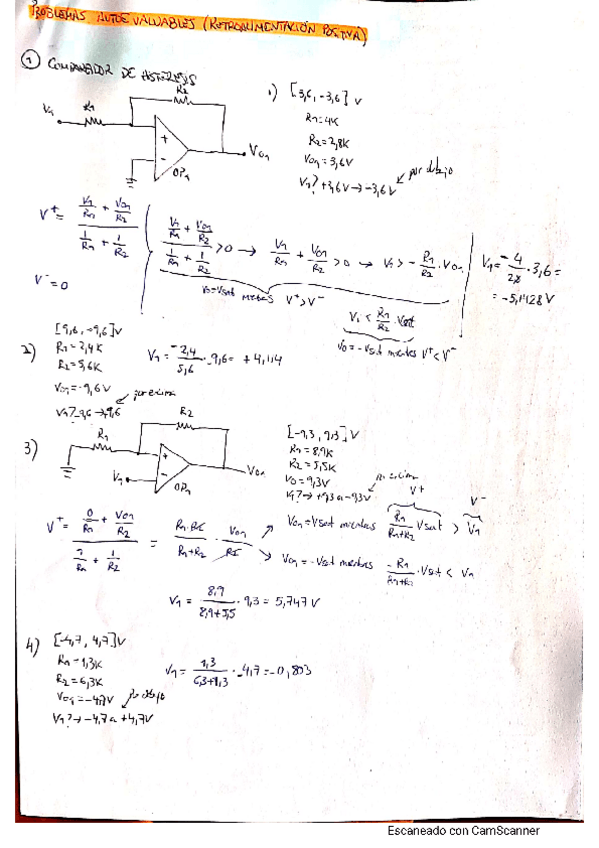 PROBLEMAS AUTOEVALUABLES (RETROALIMENTACIÓN POSITIVA)
① COMPARADOR DE HISTÉRESIS
V1 R1 R2 + - OP1 VO1
1) [3,6, -3,6] V
R1=4K
R2=2,8K
VO1=3,6V
V1? +3,6V → -3,6V por debajo
V+ = (V1/R1 + VO1/R2) / (1/R1 + 1/R2)
V- = 0
(V1/R1 + VO1/R2) / (1/R1 + 1/R2) > 0 → V1/R1 + VO1/R2 > 0 → V1 > -R1/R2 · VO1
Vo=Vsat mientras V+>V-
V1 < R1/R2 · Vsat
Vo=-Vsat mientras V+<V-
V1 = -4/2,8 · 3,6 =
= -5,1428V
2) [9,6, -9,6]V
R1=2,4K
R2=5,6K
VO1=-9,6V
V1? -9,6 → 9,6 por encima
V1 = -2,4/5,6 · -9,6 = +4,114
3) R1 R2 V1 + - OP1 VO1
[-9,3, 9,3]V
R1=8,9K
R2=5,5K
VO=9,3V
V1? → +9,3 a -9,3V por encima
V+ = (0/R1 + VO1/R2) / (1/R1 + 1/R2) = R1·R2/(R1+R2) · VO1/R2
VO1=Vsat mientras R1/(R1+R2) Vsat > V1
V+ V-
VO1=-Vsat mientras -R1/(R1+R2) · Vsat < V1
V1 = 8,9/(8,9+5,5) · 9,3 = 5,747V
4) [-4,7, 4,7]V
R1=1,3K
R2=6,3K
VO1=-4,7V por debajo
V1? → -4,7 a +4,7V
V1 = 1,3/(6,3+1,3) · -4,7 = -0,803
Escaneado con CamScanner